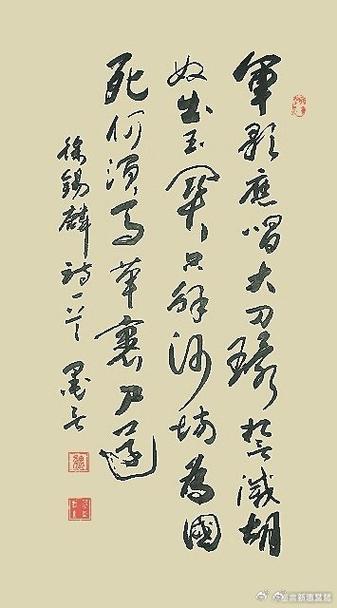 軍歌應唱大刀環誓滅胡
奴出玉關只解沙場為國
死何須馬革裹尸還
徐錫麟詩一首